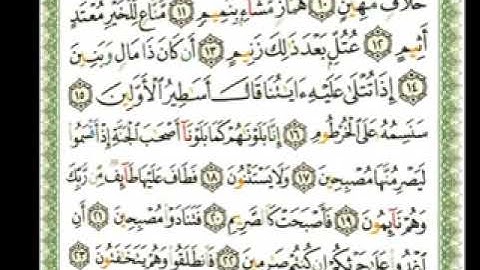 حَلَّافٍ مَّهِينٍ ۝١٠ هَمَّازٍ مَّشَّآءٍۭ بِنَمِيمٍ ۝١١ مَّنَّاعٍ لِّلْخَيْرِ مُعْتَدٍ
أَثِيمٍ ۝١٢ عُتُلٍّۭ بَعْدَ ذَٰلِكَ زَنِيمٍ ۝١٣ أَن كَانَ ذَا مَالٍ وَبَنِينَ
۝١٤ إِذَا تُتْلَىٰ عَلَيْهِ ءَايَٰتُنَا قَالَ أَسَٰطِيرُ ٱلْأَوَّلِينَ ۝١٥
سَنَسِمُهُۥ عَلَى ٱلْخُرْطُومِ ۝١٦ إِنَّا بَلَوْنَٰهُمْ كَمَا بَلَوْنَآ أَصْحَٰبَ ٱلْجَنَّةِ إِذْ أَقْسَمُوا۟
لَيَصْرِمُنَّهَا مُصْبِحِينَ ۝١٧ وَلَا يَسْتَثْنُونَ ۝١٨ فَطَافَ عَلَيْهَا طَآئِفٌ مِّن رَّبِّكَ
وَهُمْ نَآئِمُونَ ۝١٩ فَأَصْبَحَتْ كَٱلصَّرِيمِ ۝٢٠ فَتَنَادَوْا۟ مُصْبِحِينَ ۝٢١ أَنِ
ٱغْدُوا۟ عَلَىٰ حَرْثِكُمْ إِن كُنتُمْ صَٰرِمِينَ ۝٢٢ فَٱنطَلَقُوا۟ وَهُمْ يَتَخَٰفَتُونَ ۝٢٣